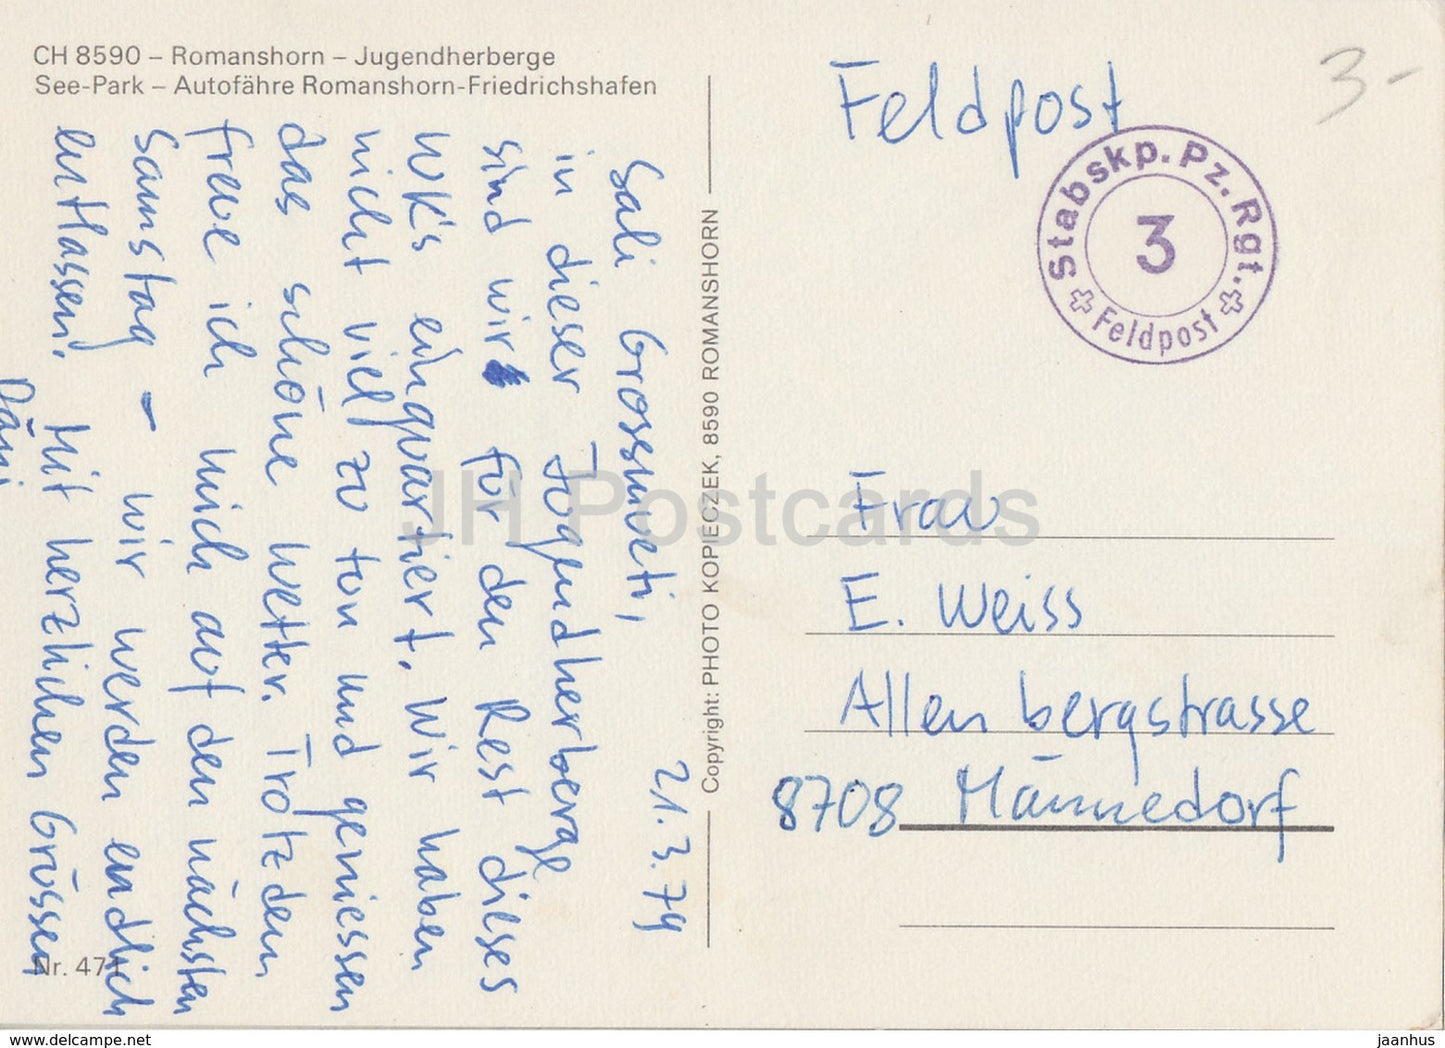 CH 8590 – Romanshorn – Jugendherberge
See-Park – Autofähre Romanshorn-Friedrichshafen
21.3.79
Sali Grossmueti,
in dieser Jugendherberge
sind wir für den Rest dieses
WK's einquartiert. Wir haben
nicht viel zu tun und geniessen
das schöne Wetter. Trotzdem
freue ich mich auf den nächsten
Samstag – wir werden endlich
entlassen! Mit herzlichen Grüssen
Däni
Nr. 471
Copyright: PHOTO KOPIECZEK, 8590 ROMANSHORN
3-
Feldpost
Stabskp. Pz. Rgt.
3
Feldpost
Frau
E. Weiss
Allenbergstrasse
8708 Männedorf
JH Postcards
www.delcampe.net
jaanhus